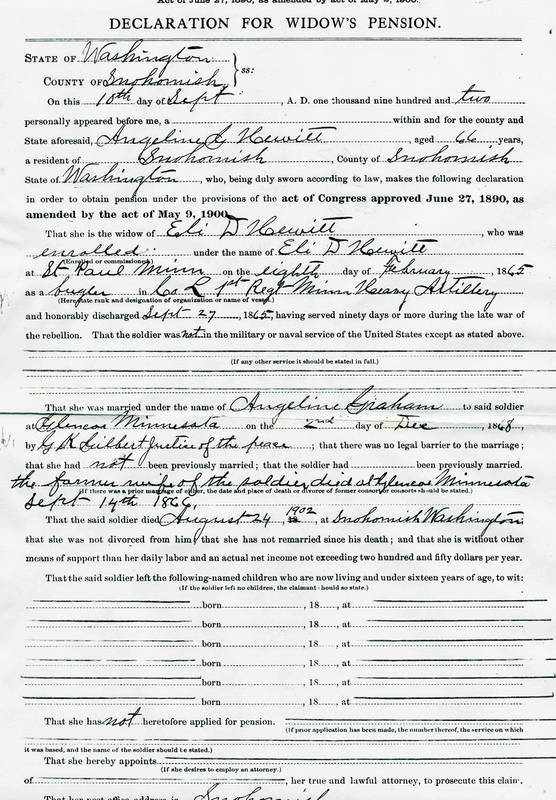 Act of June 27, 1890, as amended by act of May 9, 1900.
DECLARATION FOR WIDOW'S PENSION.
STATE OF Washington
COUNTY OF Snohomish } ss:
On this 10th day of Sept, A. D. one thousand nine hundred and two
personally appeared before me, a within and for the county and
State aforesaid, Angeline G Hewitt, aged 66 years,
a resident of Snohomish, County of Snohomish
State of Washington, who, being duly sworn according to law, makes the following declaration
in order to obtain pension under the provisions of the act of Congress approved June 27, 1890, as
amended by the act of May 9, 1900.
That she is the widow of Eli D Hewitt, who was
enrolled under the name of Eli D Hewitt
(Enrolled or commissioned.)
at St Paul Minn on the eighth day of February, 1865
as a bugler in Co L 1st Regt Minn Heavy Artillery
(Here state rank and designation of organization or name of vessel.)
and honorably discharged Sept 27, 1865, having served ninety days or more during the late war of
the rebellion. That the soldier was not in the military or naval service of the United States except as stated above.
(If any other service it should be stated in full.)
That she was married under the name of Angeline Graham to said soldier
at Glencoe Minnesota on the 2nd day of Dec, 1868,
by G K Gilbert Justice of the peace; that there was no legal barrier to the marriage;
that she had not been previously married; that the soldier had been previously married.
the former wife of the soldier died at Glencoe Minnesota
(If there was a prior marriage of either, the date and place of death or divorce of former consort or consorts should be stated.)
Sept 14th 1866.
That the said soldier died August 24 1902, at Snohomish Washington
that she was not divorced from him; that she has not remarried since his death; and that she is without other
means of support than her daily labor and an actual net income not exceeding two hundred and fifty dollars per year.
That the said soldier left the following-named children who are now living and under sixteen years of age, to wit:
(If the soldier left no children, the claimant should so state.)
born, 18, at
born, 18, at
born, 18, at
born, 18, at
born, 18, at
born, 18, at
That she has not heretofore applied for pension.
(If prior application has been made, the number thereof, the service on which
it was based, and the name of the soldier should be stated.)
That she hereby appoints
(If she desires to employ an attorney.)
of, her true and lawful attorney, to prosecute this claim.
That her post office address is Snohomish